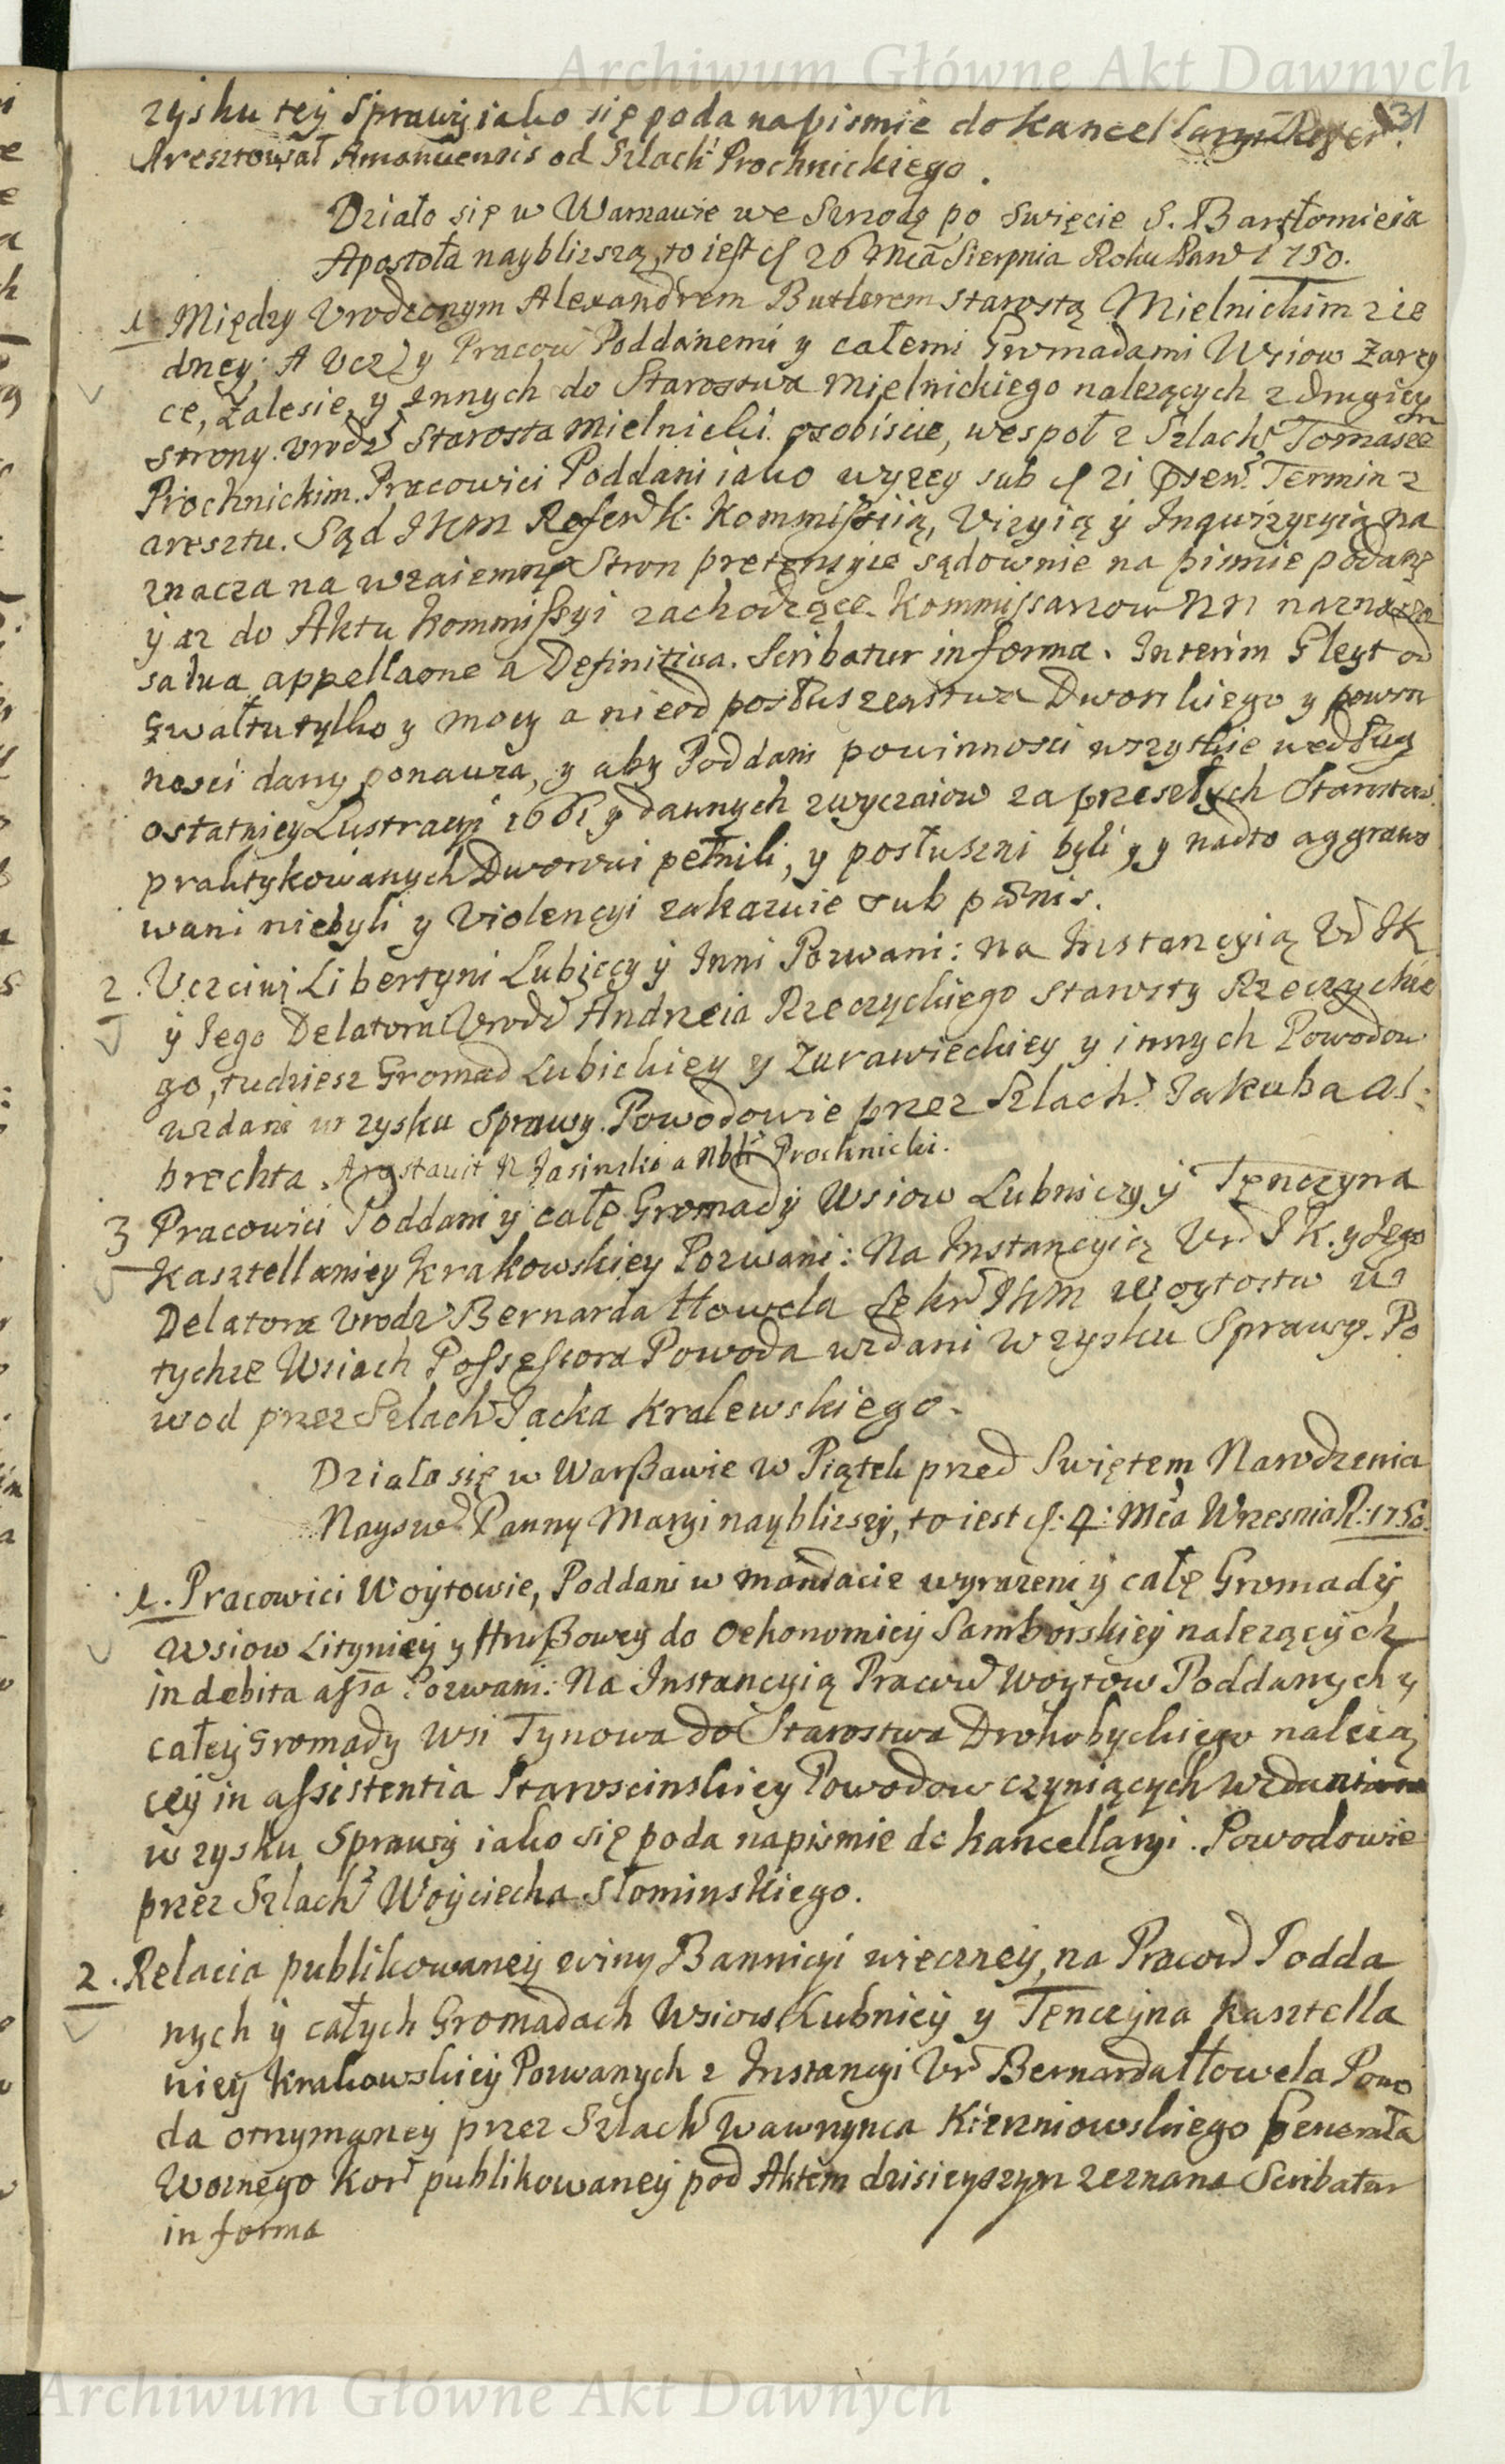 Archiwum Główne Akt Dawnych
31
zysku tey Sprawy iako się poda na pismie do Kancellaryi Refer.
Aresztował Amanuensis od Szlach Prochnickiego.
Działo się w Warszawie we Szrodę po Swięcie S. Bartłomieia
Apostoła naybliszszą, to iest d 26 Mca Sierpnia Roku Pań 1750.
1. Między Vrodzonym Alexandrem Butlerem Starostą Mielnickim z ie
dney; A Vcz) y Pracow Poddanemi y całemi Gromadami Wsiow Zarzy
ce, Zalesie, y Innych do Starostwa Mielnickiego nalezących z drugiey
strony. Vrodz Starosta Mielnicki osobiscie, wespoł z Szlach Tomaszem
Prochnickim. Pracowici Poddani iako wyzey sub d 21 Præsen. Termin z
aresztu. Sąd JKM Refer K. Kommissiią, Vizyią y Inqwizycyią na
znacza na wzaiemne Stron pretensyie sądownie na pismie podane
y az do Aktu Kommissyi zachodzące. Kommissarzow NN naznacza
salva appellaone a Definitiva. Scribatur in forma. Interim Gleyt od
gwałtu tylko y mocy a nie od posłuszenstwa Dworskiego y powin
nosci dany ponawia, y aby Poddani powinnosci wszystkie według
ostatniey Lustracyi 1661 y dawnych zwyczaiow za przeszłych Starostow
praktykowanych Dworowi pełnili, y posłuszni byli, y nadto aggrawo
wani niebyli y Violencyi zakazuie sub pœnis.
2. Vczciwi Libertyni Lubięcy y Inni Pozwani: na Instancyią Vr JK
y Iego Delatora Vrodz Andrzeia Rzeczyckiego Starosty Rzeczyckie
go, tudziesz Gromad Lubickiey y Zurawieckiey y innych Powodow
wzdani w zysku Sprawy. Powodowie przez Szlach Jakuba Al:
brechta. Arestavit N Jasinski a Nbli Prochnicki.
3 Pracowici Poddani y całe Gromady Wsiow Lubniczy y Tęnczyna
Kasztellaniey Krakowskiey Pozwani: Na Instancyią Vr J K. y Jego
Delatora Vrodz Bernarda Howela Sekr JKM Woytostw w
tychze Wsiach Possessora Powoda wzdani w zysku Sprawy. Po
wod przez Szlach Jacka Kralewskiego.
Działo się w Warszawie w Piątek przed Swiętem Narodzenia
Naysw Panny Maryi naybliszy, to iest d. 4: Mca Wrzesnia R: 1750.
1. Pracowici Woytowie, Poddani w mandacie wyrazeni y całe Gromady
Wsiow Lityniey y Hruszowey do Oekonomiey Samborskiey nalezących
in debita assa Pozwani: Na Instancyią Pracow Woytow Poddanych y
całey Gromady Wsi Tynowa do Starostwa Drohobyckiego nalezą
cey in assistentia Staroscinskiey Powodow czyniących wzdani
w zysku Sprawy iako się poda na pismie do kancellaryi. Powodowie
przez Szlach Woyciecha Słominskiego.
2. Relacia publikowaney winy Bannicyi wieczney, na Pracow Podda
nych y całych Gromadach Wsiow Lubnicy y Tenczyna Kasztella
niey Krakowskiey Pozwanych z Instancyi Vr Bernarda Howela Powo
da otrzymaney przez Szlach Wawrzynca Kierzniowskiego Generała
Woznego Kor publikowaney pod Aktem dzisieyszym zeznana Scribatur
in forma
Archiwum Główne Akt Dawnych